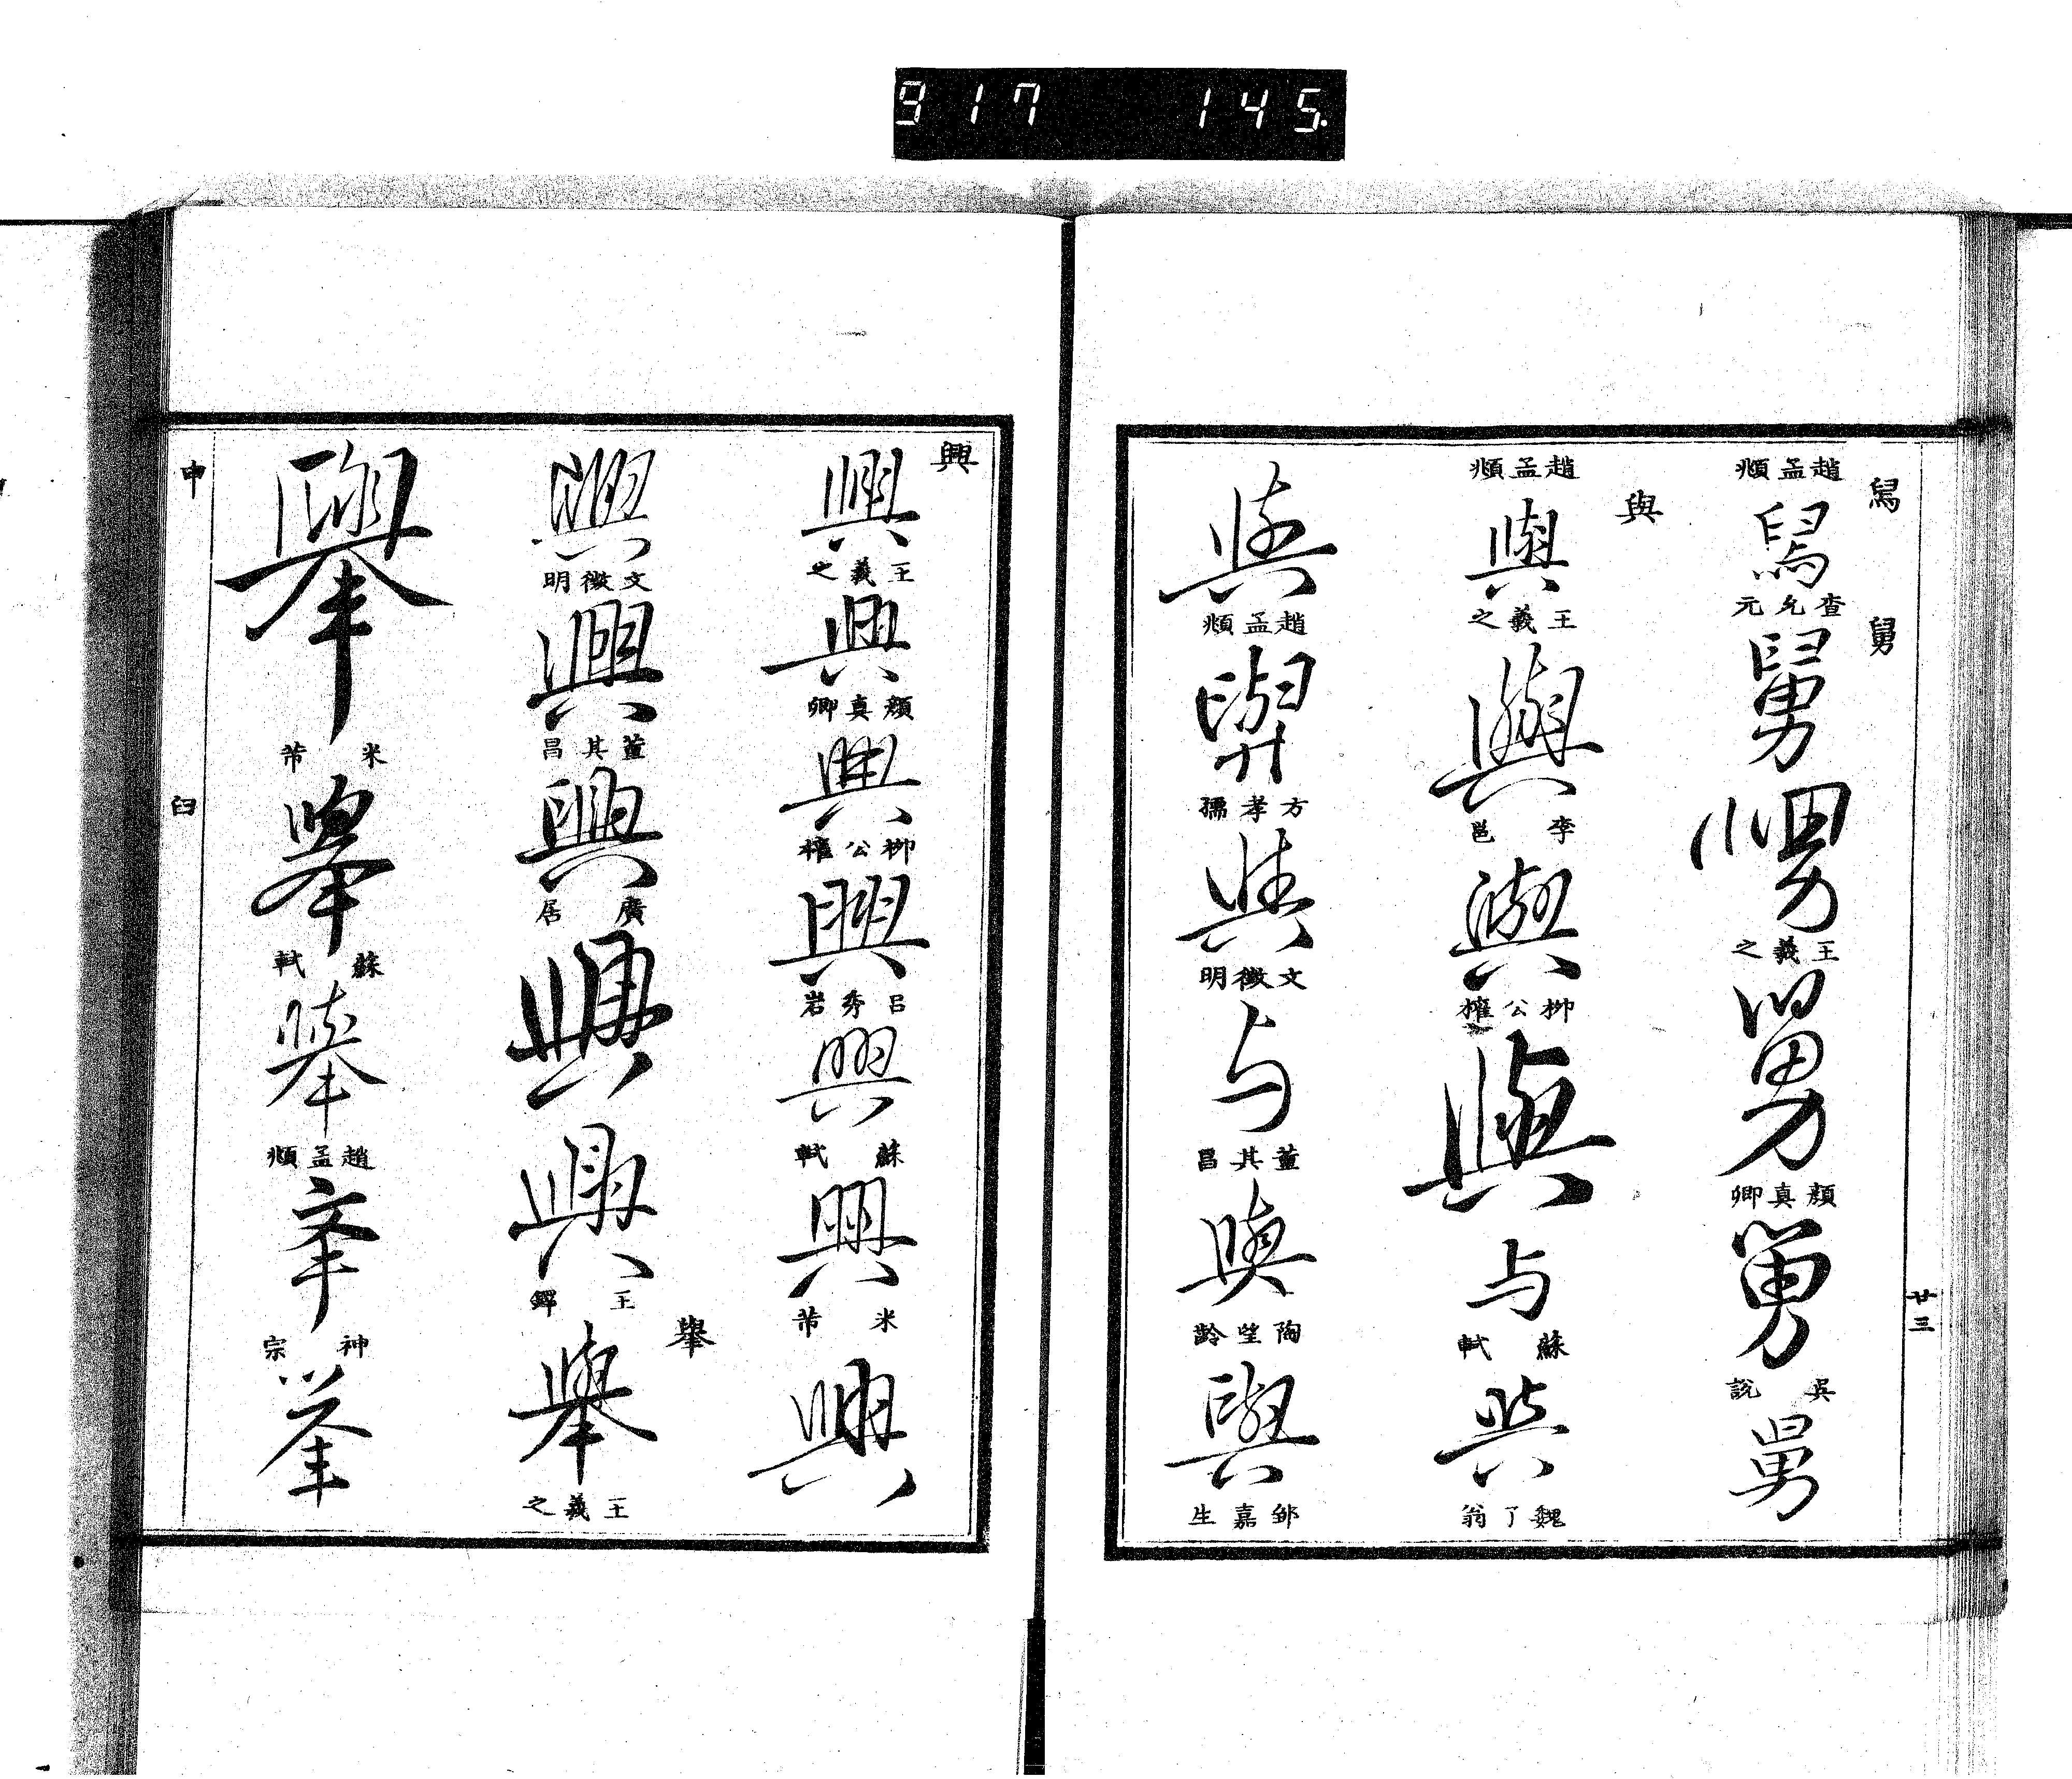 917 145.
舄
舅
趙孟頫
舄
查允元
舅
舅
王羲之
舅
顏真卿
舅
吳說
舅
廿三
與
趙孟頫
與
王羲之
與
李邕
與
柳公權
與
与
蘇軾
與
魏了翁
與
趙孟頫
與
方孝孺
與
文徵明
与
董其昌
與
陶望齡
與
鄒嘉生
興
興
王羲之
興
顏真卿
興
柳公權
興
呂秀岩
興
蘇軾
興
米芾
興
興
文徵明
興
董其昌
興
廣居
興
興
王鐸
舉
舉
王羲之
舉
米芾
舉
蘇軾
舉
趙孟頫
舉
神宗
舉
申
臼